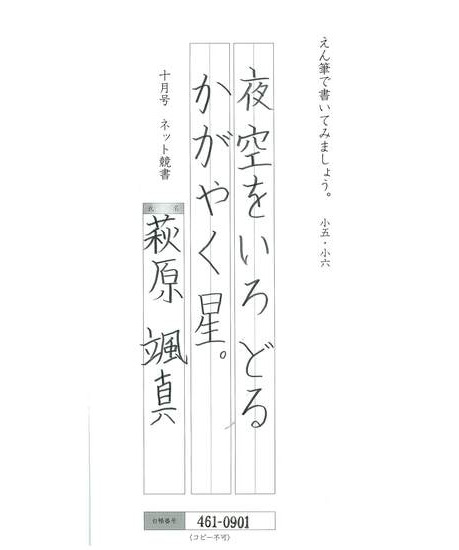 えん筆で書いてみましょう。 小五・小六
夜空をいろどる
かがやく星。
十月号 ネット競書
氏名
萩原 颯真
台帳番号 461-0901
(コピー不可)